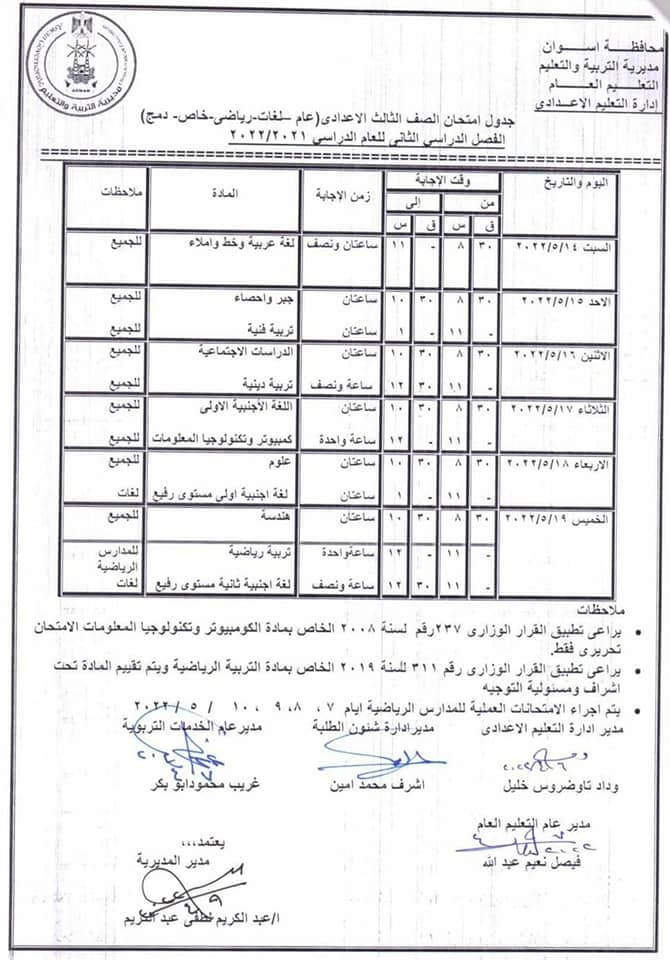 محافظة اسوان
مديرية التربية والتعليم
التعليم العام
إدارة التعليم الاعدادى
مديرية التربية والتعليم
ASWAN
جدول امتحان الصف الثالث الاعدادى(عام –لغات-رياضى-خاص- دمج)
الفصل الدراسي الثاني للعام الدراسي ٢٠٢٢/٢٠٢١
اليوم والتاريخ وقت الإجابة زمن الإجابة المادة ملاحظات
من إلى
ق س ق س
السبت ٢٠٢٢/٥/١٤ ٣٠ ٨ - ١١ ساعتان ونصف لغة عربية وخط واملاء للجميع
الاحد ٢٠٢٢/٥/١٥ ٣٠ ٨ ٣٠ ١٠ ساعتان جبر واحصاء للجميع
- ١١ - ١ ساعتان تربية فنية للجميع
الاثنين ٢٠٢٢/٥/١٦ ٣٠ ٨ ٣٠ ١٠ ساعتان الدراسات الاجتماعية للجميع
- ١١ ٣٠ ١٢ ساعة ونصف تربية دينية للجميع
الثلاثاء ٢٠٢٢/٥/١٧ ٣٠ ٨ ٣٠ ١٠ ساعتان اللغة الأجنبية الاولى للجميع
- ١١ - ١٢ ساعة واحدة كمبيوتر وتكنولوجيا المعلومات للجميع
الاربعاء ٢٠٢٢/٥/١٨ ٣٠ ٨ ٣٠ ١٠ ساعتان علوم للجميع
- ١١ - ١ ساعتان لغة اجنبية اولى مستوى رفيع لغات
الخميس ٢٠٢٢/٥/١٩ ٣٠ ٨ ٣٠ ١٠ ساعتان هندسة للجميع
- ١١ - ١٢ ساعةواحدة تربية رياضية للمدارس
الرياضية
- ١١ ٣٠ ١٢ ساعة ونصف لغة اجنبية ثانية مستوى رفيع لغات
ملاحظات
• يراعى تطبيق القرار الوزارى ٢٣٧رقم لسنة ٢٠٠٨ الخاص بمادة الكومبيوتر وتكنولوجيا المعلومات الامتحان
تحريرى فقط.
• يراعى تطبيق القرار الوزارى رقم ٣١١ للسنة ٢٠١٩ الخاص بمادة التربية الرياضية ويتم تقييم المادة تحت
اشراف ومسئولية التوجيه
• يتم اجراء الامتحانات العملية للمدارس الرياضية ايام ٧ ، ٨، ٩ ، ١٠ / ٥ / ٢٠٢٢
مدير ادارة التعليم الاعدادى مديرادارة شئون الطلبة مديرعام الخدمات التربوية
وداد تاوضروس خليل اشرف محمد امين غريب محمودابو بكر
مدير عام التعليم العام
فيصل نعيم عبد الله
يعتمد،،،
مدير المديرية
ا/عبد الكريم لطفى عبد الكريم